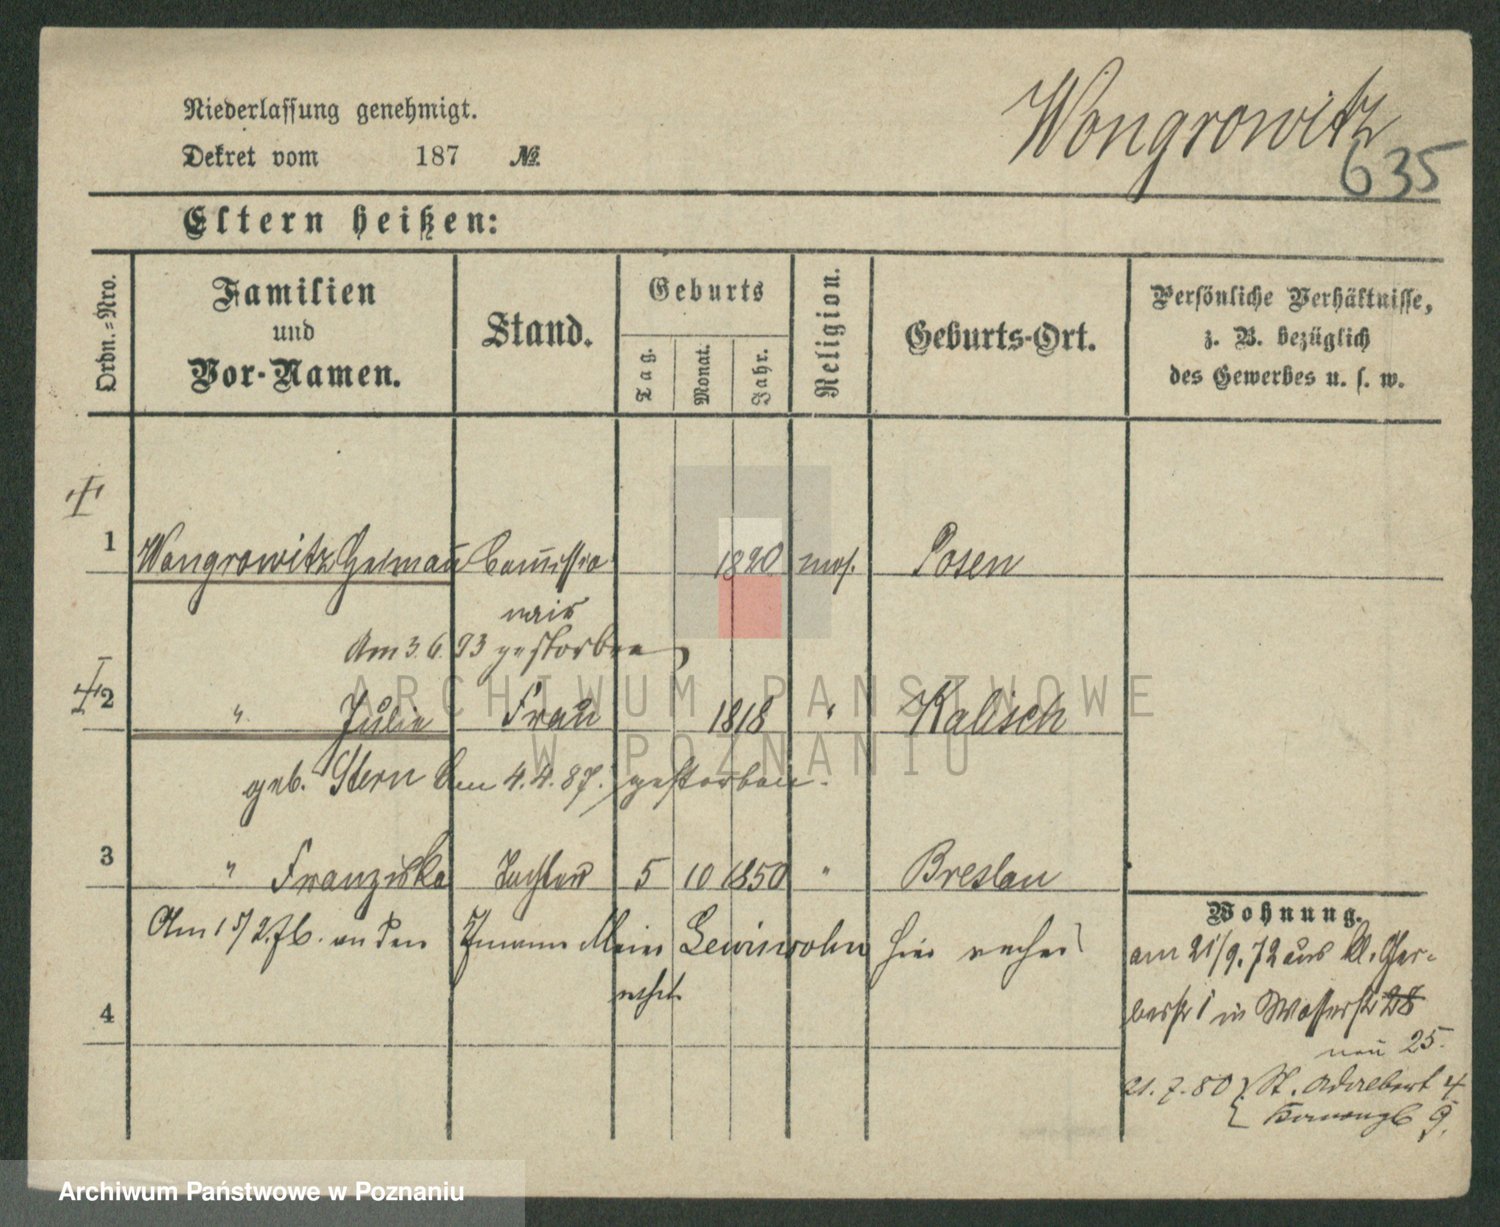 Niederlassung genehmigt.
Dekret vom 187 №
Wongrowitz
635
Eltern heißen:
Ordn.-Nro.
Familien und Vor-Namen.
Stand.
Geburts
Tag.
Monat.
Jahr.
Religion.
Geburts-Ort.
Persönliche Verhältnisse,
z. B. bezüglich
des Gewerbes u. s. w.
1 Wongrowitz Commissio 1820 mos. Posen
nair
Am 3.6.93 gestorben
2 " Julie Frau 1818 " Kalisch
geb. Stern am 4.4.87. gestorben.
3 " Franziska Tochter 5 10 1850 " Breslau
Am 15/2.76. an den Lewinsohn hier
4
Wohnung.
am 21/9.72 aus kl. Ger-
berstr 1 in Wasserstr 28
neu 25.
21.7.80 St. Adalbert 4
9.
ARCHIWUM PAŃSTWOWE
W POZNANIU
Archiwum Państwowe w Poznaniu